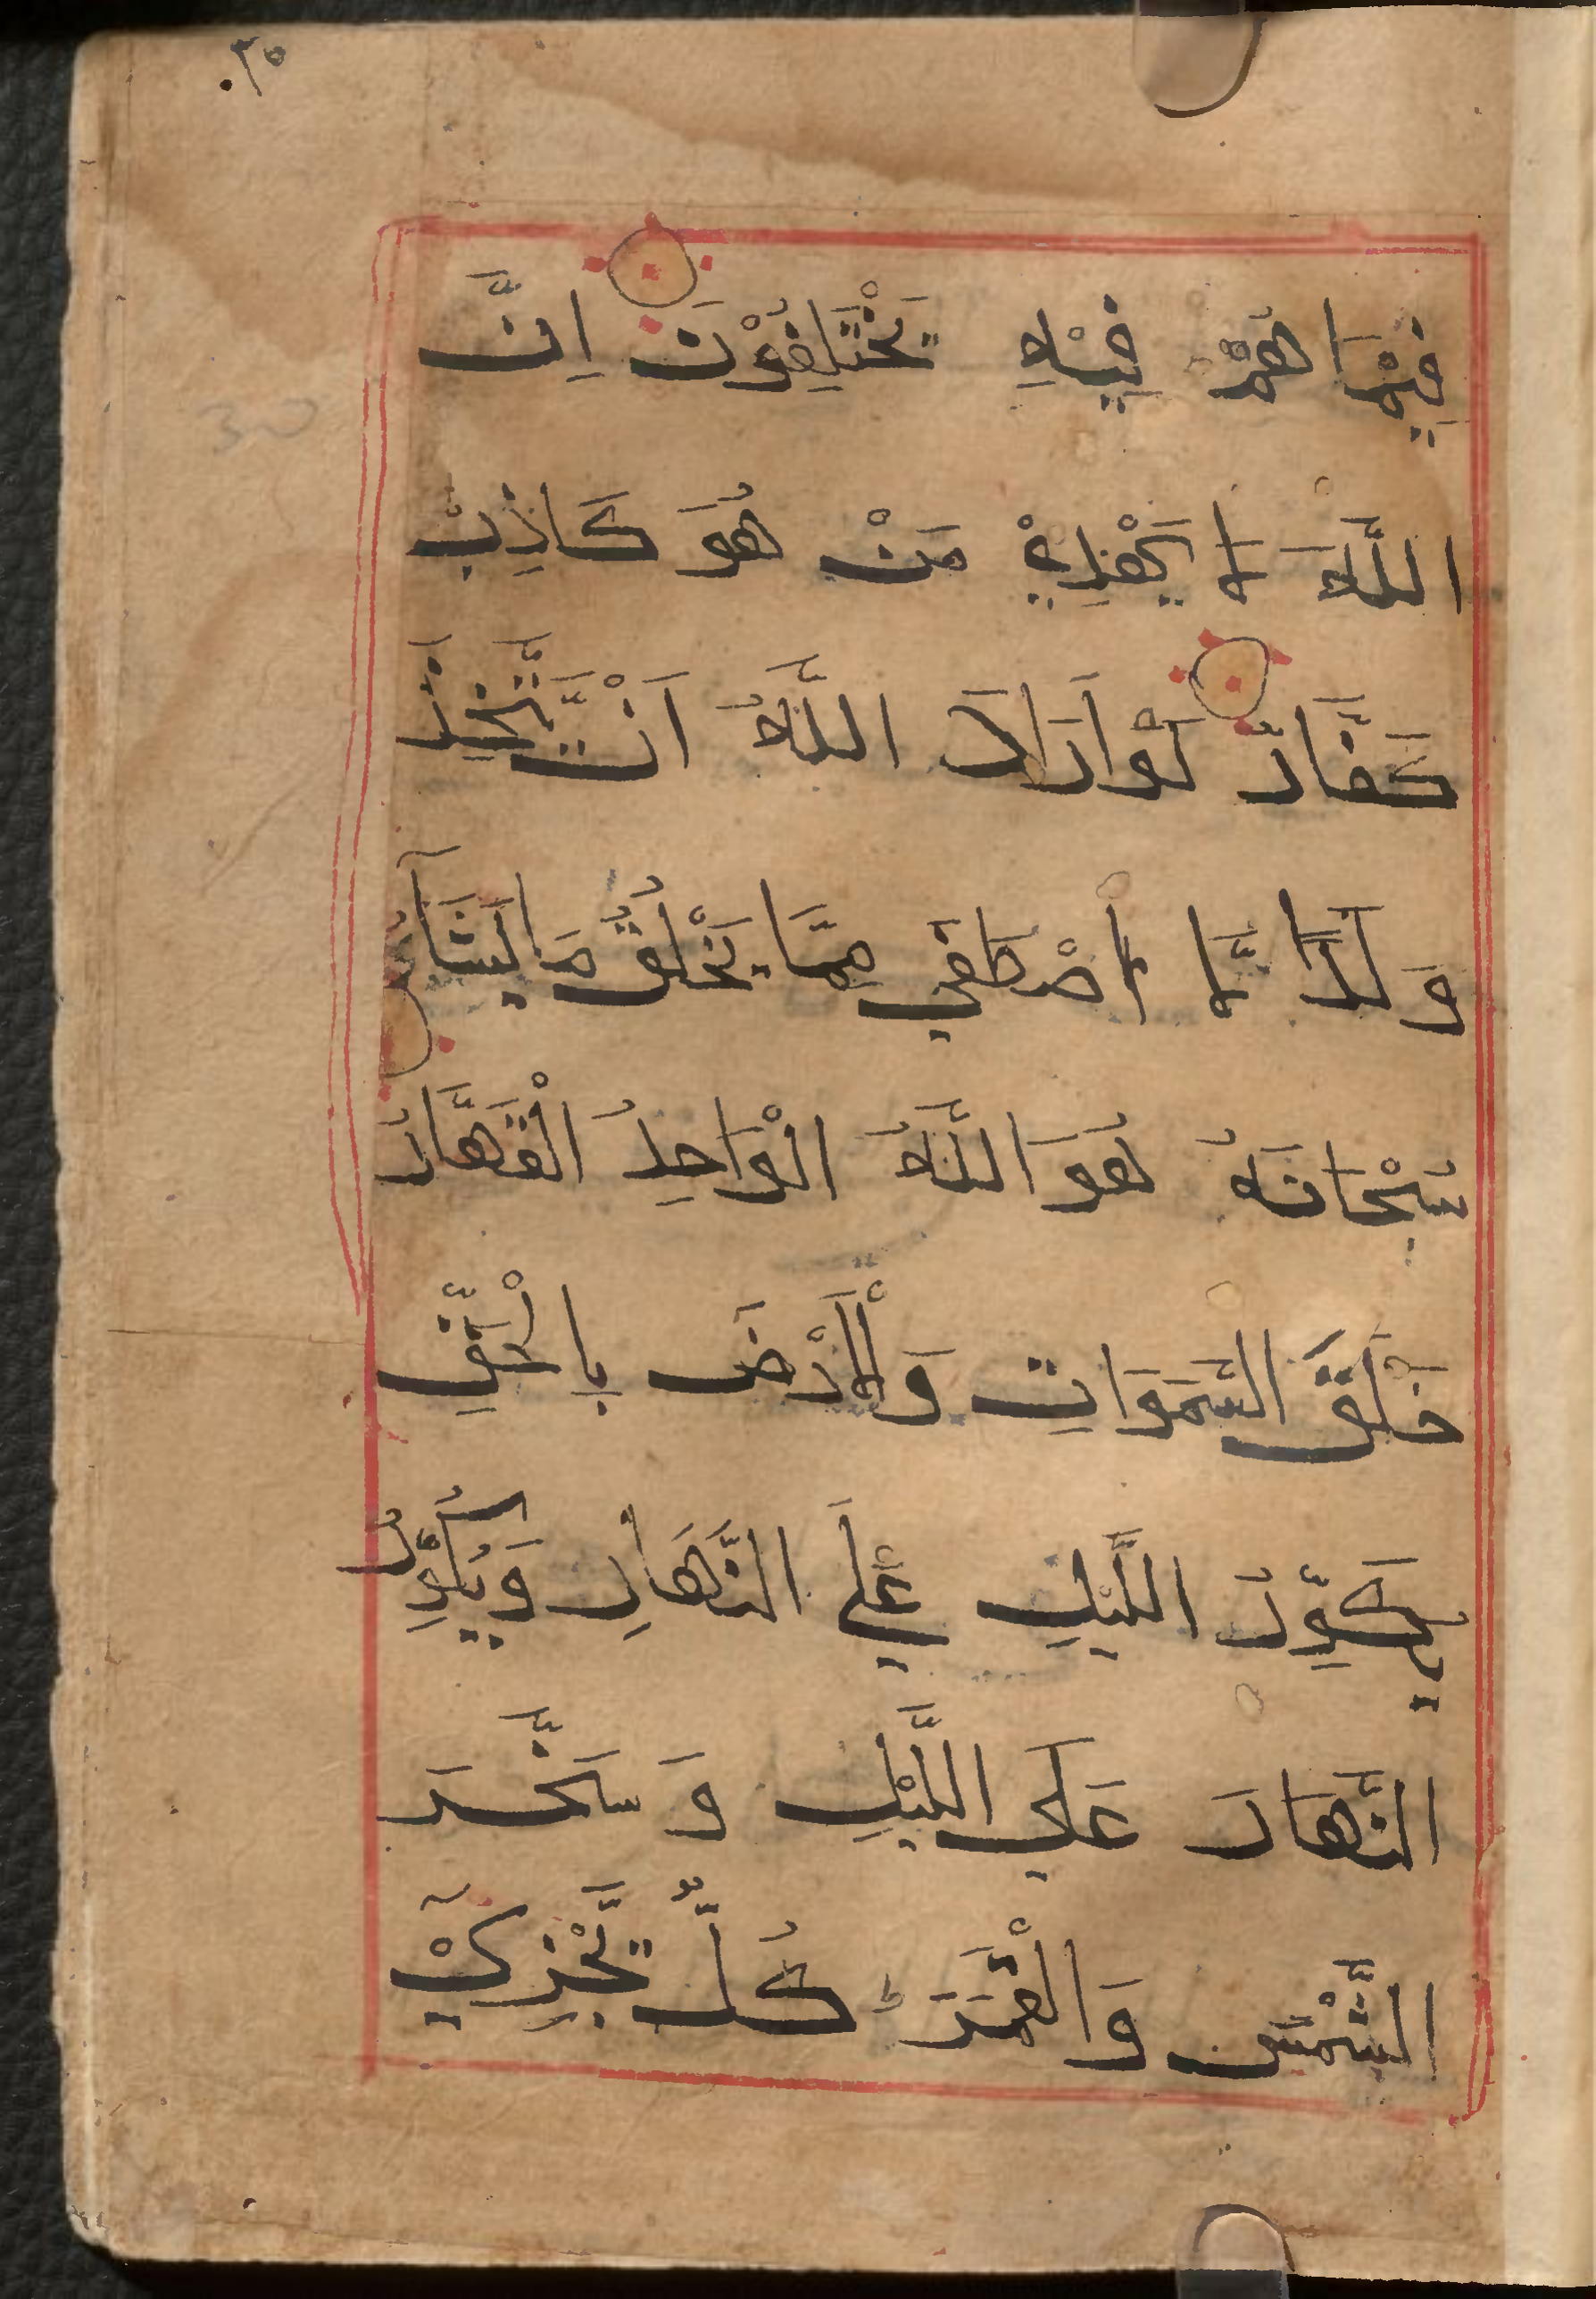 ٣٥.
فِيْمَا هُمْ فِيْهِ يَخْتَلِفُوْنَ اِنَّ
اللَّهَ لَا يَهْدِيْ مَنْ هُوَ كَاذِبٌ
كَفَّارٌ لَوْ اَرَادَ اللَّهُ اَنْ يَّتَّخِذَ
وَلَدًا لَّا اصْطَفَي مِمَّا يَخْلُقُ مَا يَشَآءُ
سُبْحَانَهُ هُوَ اللَّهُ الْوَاحِدُ الْقَهَّارُ
خَلَقَ السَّمَوَاتِ وَالْاَرْضَ بِالْحَقِّ
يُكَوِّرُ اللَّيْلَ عَلَي النَّهَارِ وَيُكَوِّرُ
30
النَّهَارَ عَلَي اللَّيْلِ وَسَخَّرَ
الشَّمْسَ وَالْقَمَرَ كُلٌّ يَّجْرِيْ